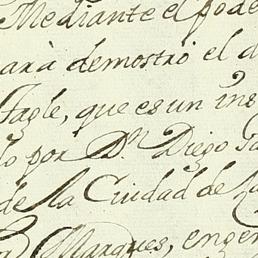 Mediante el pode
ará demostró el d
Tagle, que es un ins
do por D.n Diego Ta
de la Ciudad de
Marques, en gen